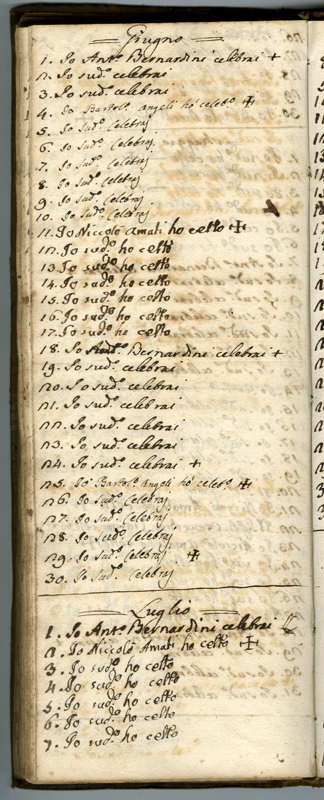 Giugno
1. Io Ant.o Bernardini celebrai +
2. Io sud.o celebrai
3. Io sud.o celebrai
4. Io Bartol. Angeli hò celeb.o ✠
5. Io Sud.o Celebraj
6. Io Sud.o Celebraj
7. Io Sud.o Celebraj
8. Io Sud.o Celebraj
9. Io Sud.o Celebraj
10. Io Sud.o Celebraj
11. Io Niccolò Amati ho celto ✠
12. Io sud.o ho celto
13. Io sud.o ho celto
14. Io sud.o ho celto
15. Io sud.o ho celto
16. Io sud.o ho celto
17. Io sud.o ho celto
18. Io Ant.o Bernardini celebrai +
19. Io sud.o celebrai
20. Io sud.o celebrai
21. Io sud.o celebrai
22. Io sud.o celebrai
23. Io sud.o celebrai
24. Io sud.o celebrai +
25. Io Bartol.o Angeli hò celeb.o ✠
26. Io Sud.o Celebraj
27. Io Sud.o Celebraj
28. Io Sud.o Celebraj
29. Io Sud.o Celebraj ✠
30. Io Sud.o Celebraj
Luglio
1. Io Ant.o Bernardini celebrai
2. Io Niccolò Amati ho celto ✠
3. Io sud.o ho celto
4. Io sud.o ho celto
5. Io sud.o ho celto
6. Io sud.o ho celto
7. Io sud.o ho celto